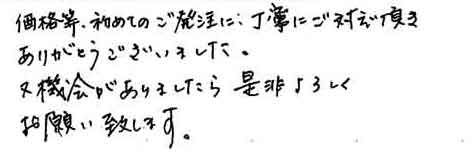 価格等、初めてのご発注に、丁寧にご対応頂き
ありがとうございました。
又機会がありましたら是非よろしく
お願い致します。